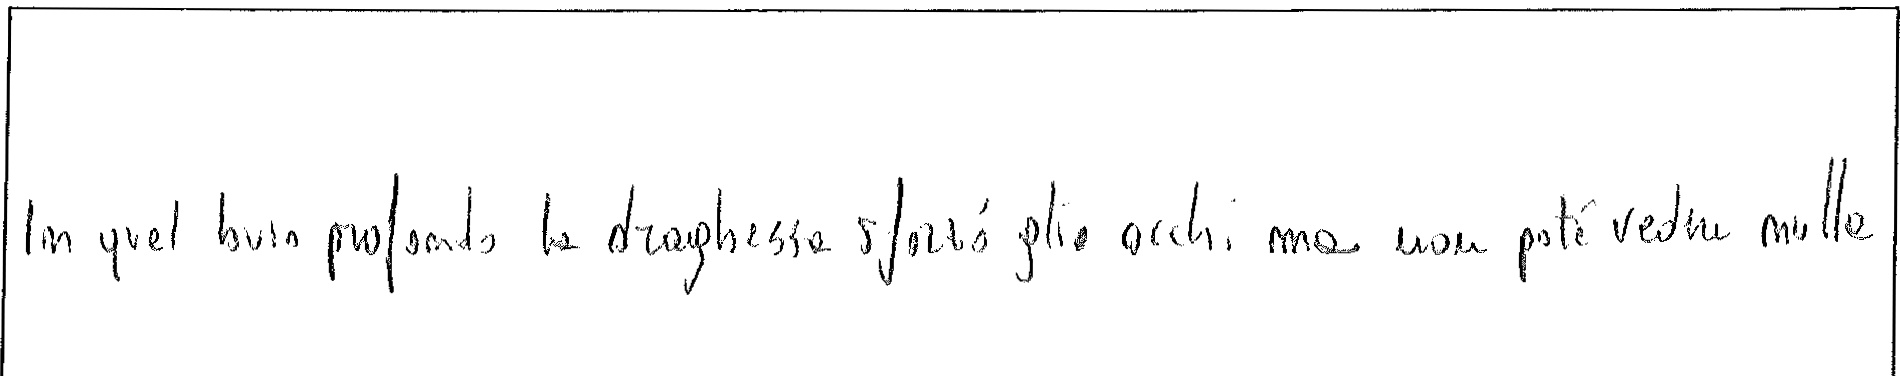 In quel buio profondo la draghessa sforzó glio occhi ma non poté vedere nulla